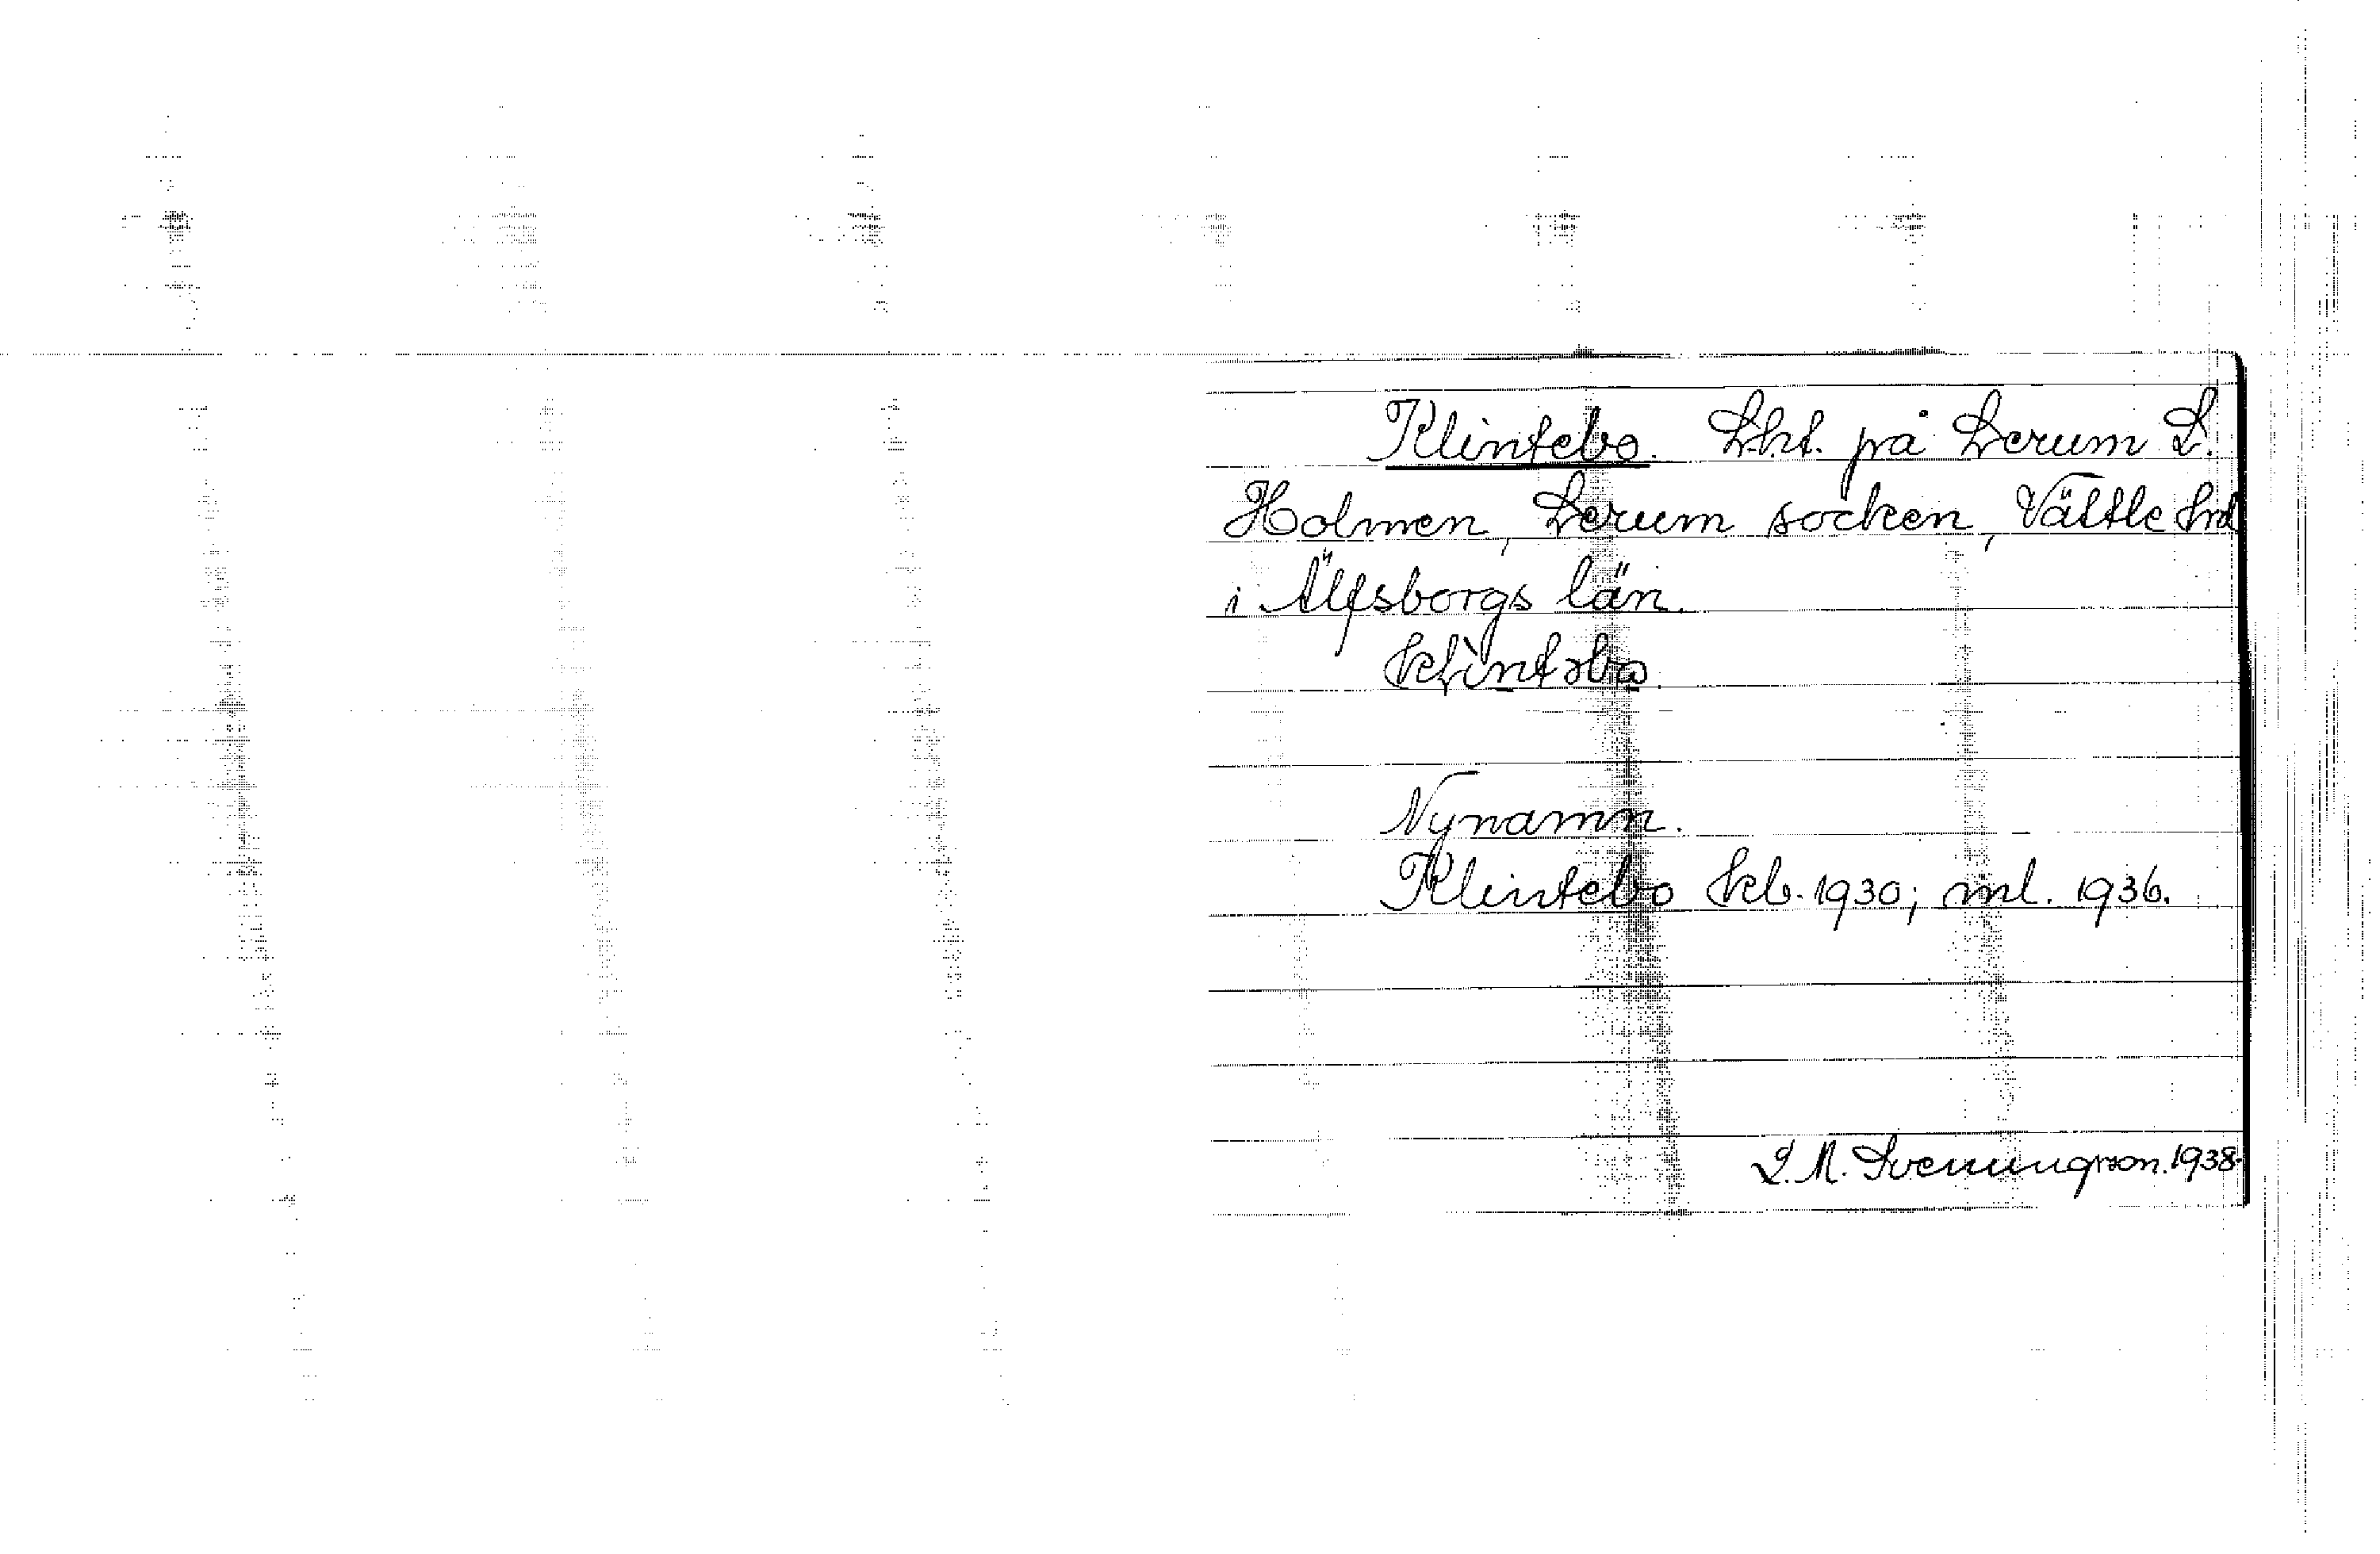 Klintebo. Lht. på Lerum L.
Holmen, Lerum socken, Vättle hd
i Älfsborgs län.
klìntəbo.
Nynamn.
Klintebo kb. 1930; ml. 1936.
L. M. Svenungsson. 1938.